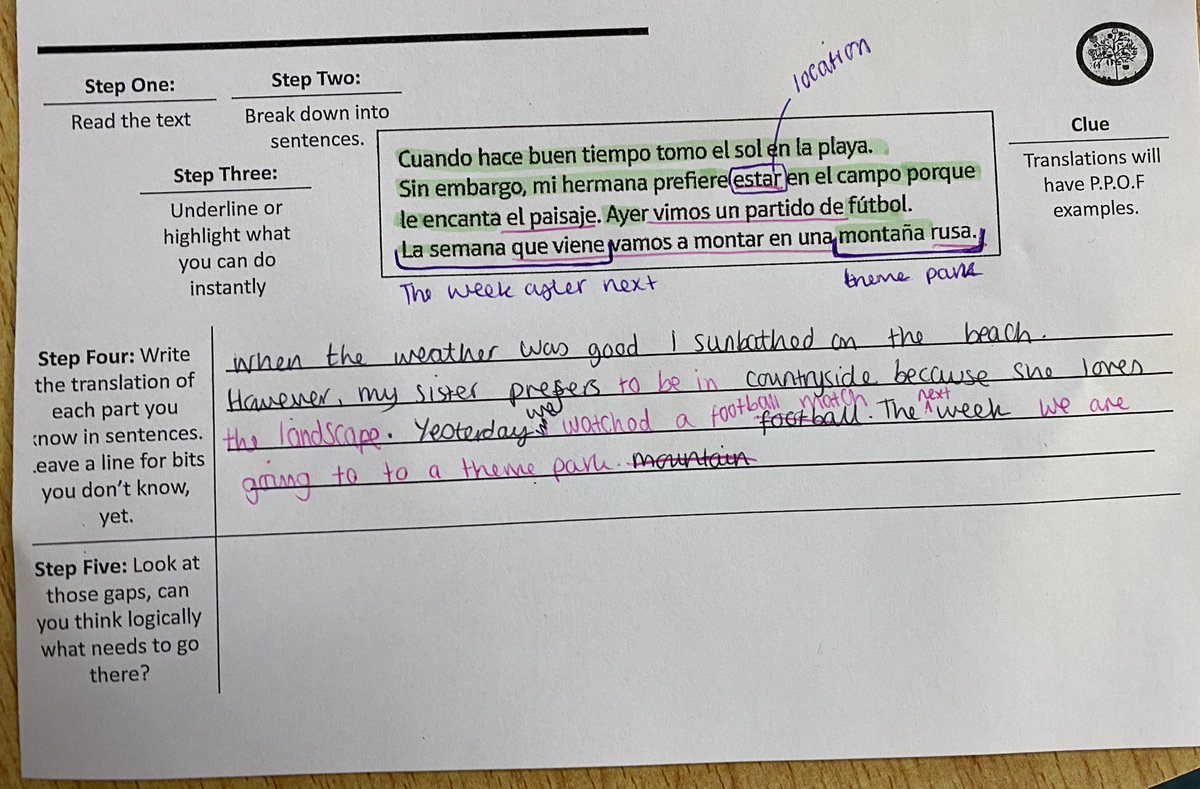 location
Step One:
Read the text
Step Two:
Break down into
sentences.
Step Three:
Underline or
highlight what
you can do
instantly
Cuando hace buen tiempo tomo el sol en la playa.
Sin embargo, mi hermana prefiere estar en el campo porque
le encanta el paisaje. Ayer vimos un partido de fútbol.
La semana que viene vamos a montar en una montaña rusa.
The week after next
theme park
Clue
Translations will
have P.P.O.F
examples.
Step Four: Write
the translation of
each part you
now in sentences.
eave a line for bits
you don't know,
yet.
when the weather was good I sunbathed on the beach.
However, my sister prefers to be in countryside because she loves
the landscape. Yesterday we watched a football match football. The next week we are
going to to a theme park. mountain
Step Five: Look at
those gaps, can
you think logically
what needs to go
there?